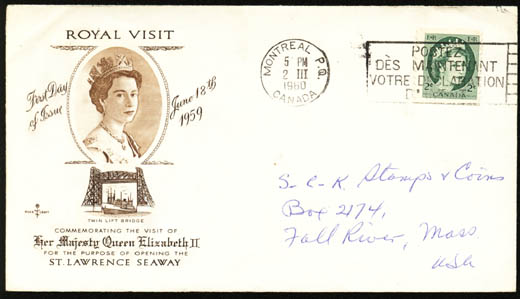 ROYAL VISIT
First Day
of Issue
June 18th
1959
TWIN LIFT BRIDGE
COMMEMORATING THE VISIT OF
Her Majesty Queen Elizabeth II
FOR THE PURPOSE OF OPENING THE
ST. LAWRENCE SEAWAY
MONTREAL P.Q.
5 PM
2 III
1960
CANADA
POSTEZ
DÈS MAINTENANT
VOTRE
2¢ 2¢
CANADA
S-C-K Stamps & Coins
Box 2174,
Fall River, Mass
USA